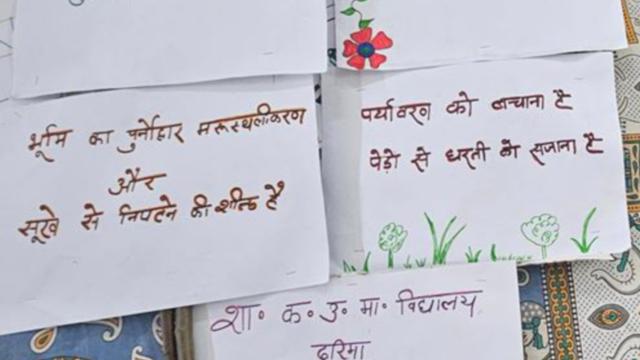 भूमि का पुर्नोद्वार मरूस्थलीकरण
और
सूखे से निपटने की शक्ति है
पर्यावरण को बचाना है
पेड़ो से धरती को सजाना है
शा॰ क॰ उ॰ मा॰ विद्यालय
दरिमा